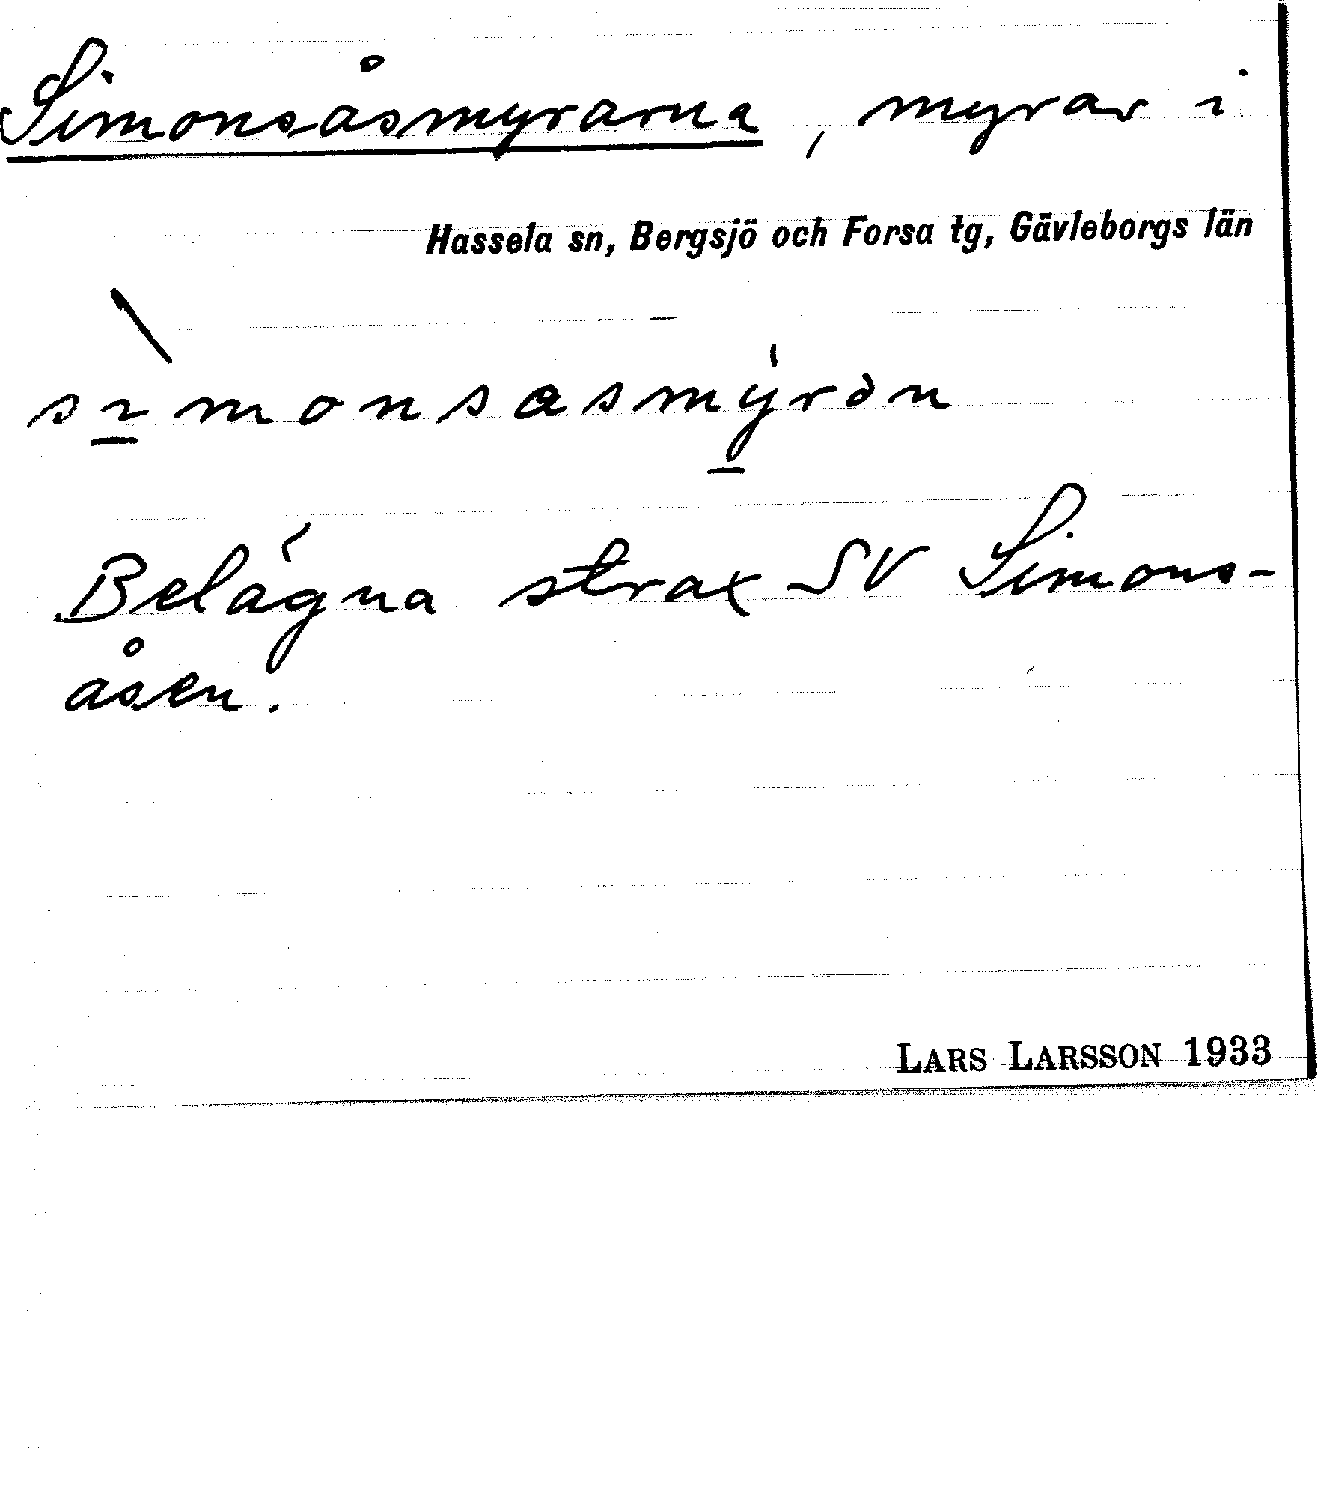 Simonsåsmyrarna, myrar i
Hassela sn, Bergsjö och Forsa tg, Gävleborgs län
sìmonsasmýròn
Belägna strax SV Simons-
åsen.
LARS LARSSON 1933